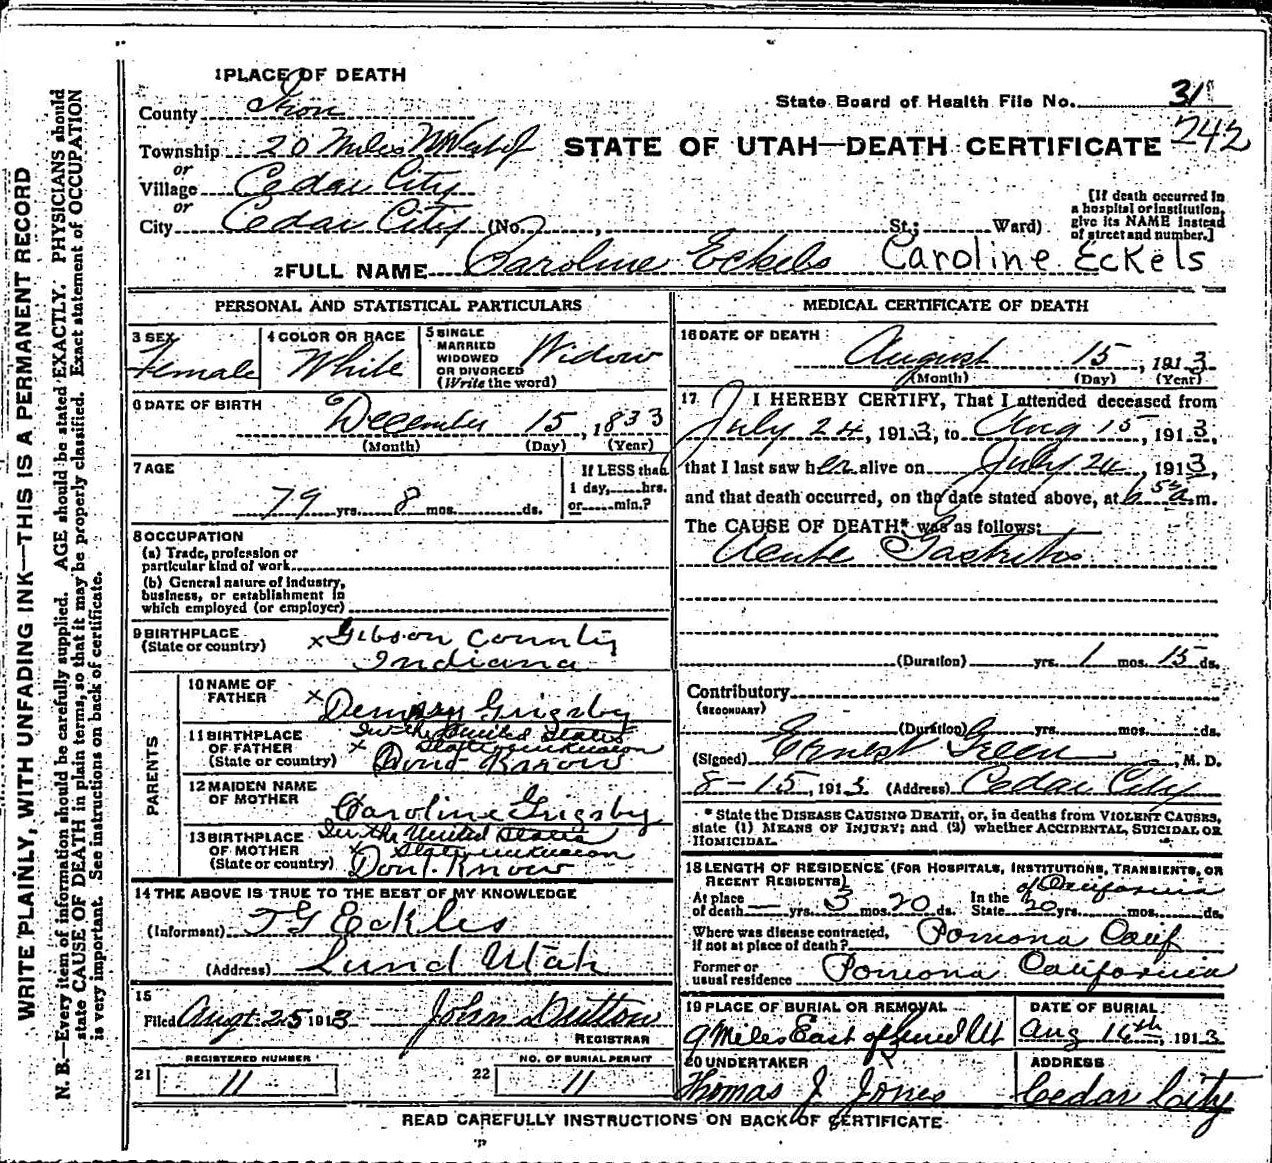 1 PLACE OF DEATH
County Iron
State Board of Health File No. 31
Township 20 Miles N West of
STATE OF UTAH—DEATH CERTIFICATE 242
or
Village Cedar City
or
City Cedar City (No. , St.; Ward)
[If death occurred in a hospital or institution, give its NAME instead of street and number.]
2 FULL NAME Caroline Eckels Caroline Eckels
PERSONAL AND STATISTICAL PARTICULARS
3 SEX
Female
4 COLOR OR RACE
White
5 SINGLE
MARRIED
WIDOWED
OR DIVORCED
(Write the word)
Widow
6 DATE OF BIRTH
December 15, 1833
(Month) (Day) (Year)
7 AGE
79 yrs. 8 mos. ds.
If LESS than
1 day, hrs.
or min.?
8 OCCUPATION
(a) Trade, profession or
particular kind of work
(b) General nature of industry,
business, or establishment in
which employed (or employer)
9 BIRTHPLACE
(State or country)
x Gibson County
Indiana
PARENTS
10 NAME OF
FATHER
x Grigsby
11 BIRTHPLACE
OF FATHER
(State or country)
In the United States
x State unknown
Dont Know
12 MAIDEN NAME
OF MOTHER
Caroline Grigsby
13 BIRTHPLACE
OF MOTHER
(State or country)
In the United States
x State unknown
Dont Know
14 THE ABOVE IS TRUE TO THE BEST OF MY KNOWLEDGE
(Informant) T G Eckles
(Address) Lund Utah
15
Filed Augt 25 1913 John Dutton
REGISTRAR
REGISTERED NUMBER
21 11
NO. OF BURIAL PERMIT
22 11
MEDICAL CERTIFICATE OF DEATH
16 DATE OF DEATH
August 15, 1913
(Month) (Day) (Year)
17 I HEREBY CERTIFY, That I attended deceased from
July 24, 1913, to Aug 15, 1913,
that I last saw her alive on July 24, 1913,
and that death occurred, on the date stated above, at a m.
The CAUSE OF DEATH* was as follows:
Acute Gastritis
(Duration) yrs. 1 mos. 15 ds.
Contributory
(SECONDARY)
(Duration) yrs. mos. ds.
(Signed) Ernest Green, M. D.
8-15, 1913 (Address) Cedar City
* State the DISEASE CAUSING DEATH, or, in deaths from VIOLENT CAUSES,
state (1) MEANS OF INJURY; and (2) whether ACCIDENTAL, SUICIDAL OR
HOMICIDAL.
18 LENGTH OF RESIDENCE (FOR HOSPITALS, INSTITUTIONS, TRANSIENTS, OR
RECENT RESIDENTS)
of California
At place
of death — yrs. 3 mos. 20 ds. In the State 20 yrs. mos. ds.
Where was disease contracted,
if not at place of death? Pomona Calif
Former or
usual residence Pomona California
19 PLACE OF BURIAL OR REMOVAL
9 Miles East of Lund Ut
DATE OF BURIAL
Aug 16th, 1913
20 UNDERTAKER
Thomas J Jones
ADDRESS
Cedar City
READ CAREFULLY INSTRUCTIONS ON BACK OF CERTIFICATE
WRITE PLAINLY, WITH UNFADING INK—THIS IS A PERMANENT RECORD
N. B.—Every item of information should be carefully supplied. AGE should be stated EXACTLY. PHYSICIANS should
state CAUSE OF DEATH in plain terms, so that it may be properly classified. Exact statement of OCCUPATION
is very important. See instructions on back of certificate.